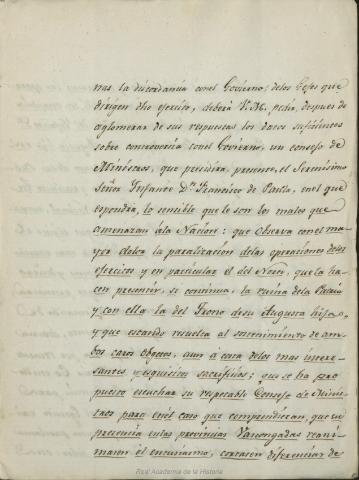 nas la discordancia con el Govierno; delos Gefes que
dirigen dho exercito, deberá V. M. pedir, despues de
aglomerar de sus respuestas los datos suficientes
sobre controversia con el Govierno, un consejo de
Ministros, que presidirá, presente, el Serenisimo
Señor Infante Dn. Francisco de Paula, en el que
espondrá, lo sensible que le son los males que
amenazan ala Nacion: que observa con el ma-
yor dolor la paralizacion delas operaciones delos
exercitos y en particular el del Norte, que la ha-
cen presentir, si continua, la ruina dela Patria
y con ella la del Trono desu Augusta hija,
y que estando resuelta al sostenimiento de am-
bos caros objetos, aun á costa delos mas intere-
santes y esquisitos sacrificios; que se ha pro
puesto escuchar su respetable Consejo de Minis-
tros para enel caso que compendieran, que su
presencia enlas provincias Vascongadas reani-
maria el entusiasmo, cortarian diferencias de
Real Academia de la Historia